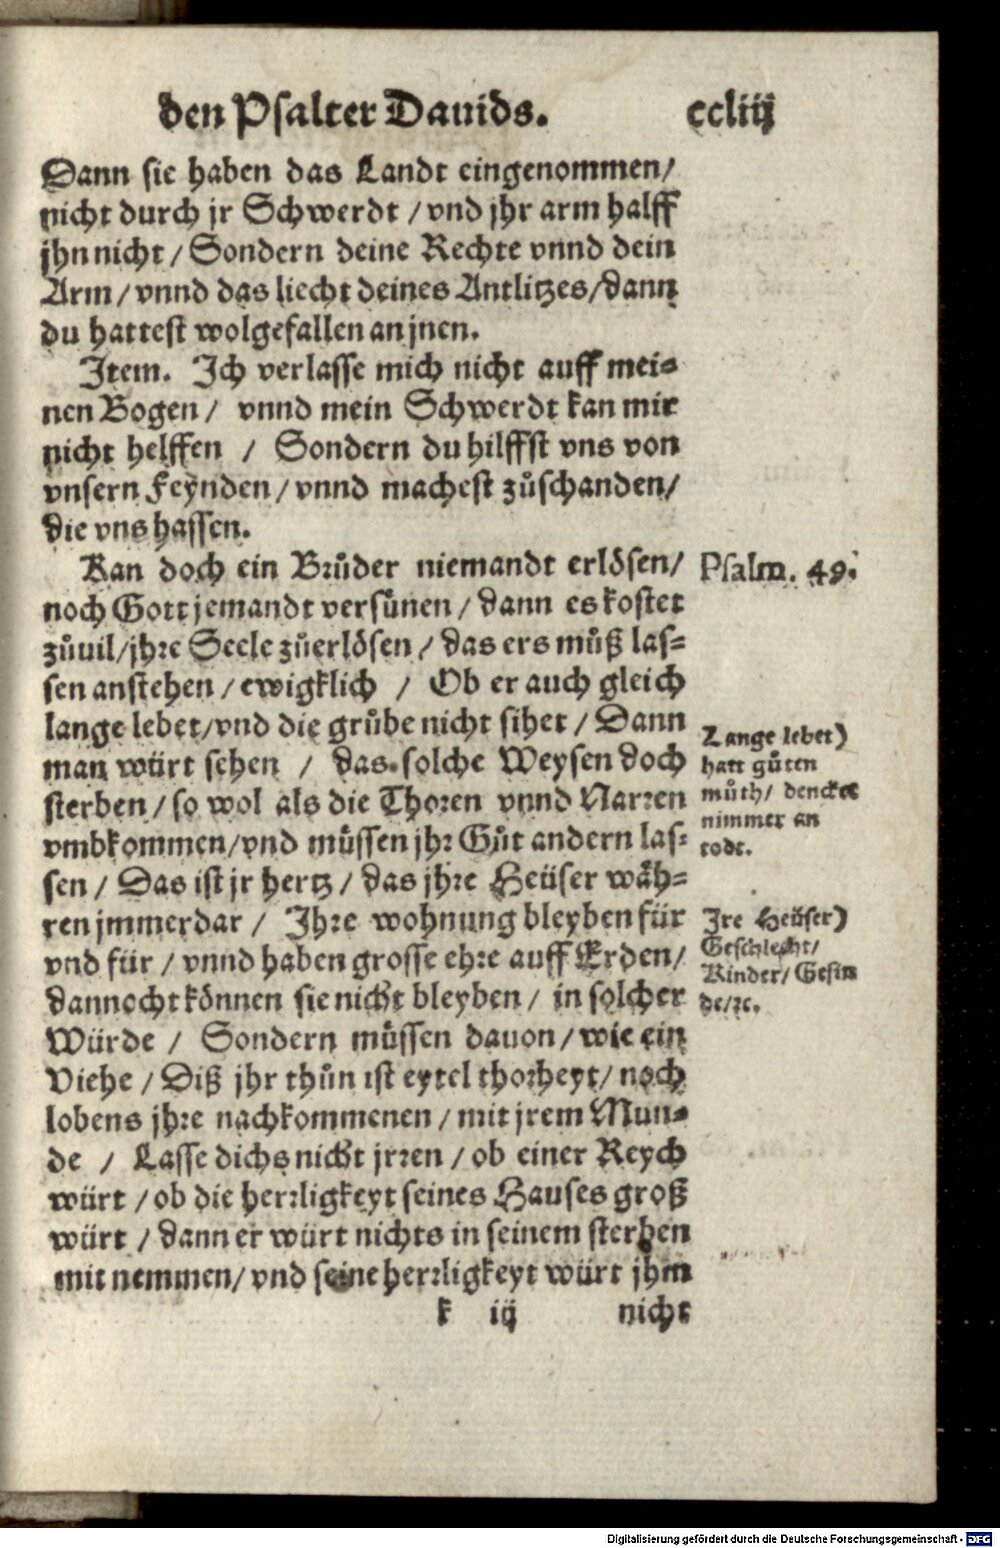 den Psalter Dauids. ccliij
Dann sie haben das Landt eingenommen/
nicht durch jr Schwerdt / vnd jhr arm halff
jhn nicht / Sondern deine Rechte vnnd dein
Arm / vnnd das liecht deines Antlitzes/dann
du hattest wolgefallen an jnen.
Item. Ich verlasse mich nicht auff mei-
nen Bogen / vnnd mein Schwerdt kan mir
nicht helffen / Sondern du hilffst vns von
vnsern Feynden / vnnd machest zůschanden/
die vns hassen.
Kan doch ein Brůder niemandt erlösen/
noch Gott jemandt versünen / dann es kostet
zůuil/jhre Seele zůerlösen / das ers můß las-
sen anstehen / ewigklich / Ob er auch gleich
lange lebet/vnd die grůbe nicht sihet / Dann
man würt sehen / das solche Weysen doch
sterben / so wol als die Thoren vnnd Narren
vmbkommen/vnd müssen jhr Gůt andern las-
sen / Das ist jr hertz / das jhre Heüser wäh-
ren jmmerdar / Ihre wohnung bleyben für
vnd für / vnnd haben grosse ehre auff Erden/
dannocht können sie nicht bleyben / in solcher
Würde / Sondern müssen dauon / wie ein
Viehe / Diß jhr thůn ist eytel thorheyt/ noch
lobens jhre nachkommenen / mit jrem Mun-
de / Lasse dichs nicht jrren / ob einer Reych
würt / ob die herrligkeyt seines Hauses groß
würt / dann er würt nichts in seinem sterben
mit nemmen/ vnd seine herrligkeyt würt jhm
k iij nicht
Psalm. 49.
Lange lebet)
hatt gůten
můth/ dencket
nimmer an
todt.
Ire Heüser)
Geschlecht/
Kinder/ Gesin
de/ꝛc.
Digitalisierung gefördert durch die Deutsche Forschungsgemeinschaft - DFG